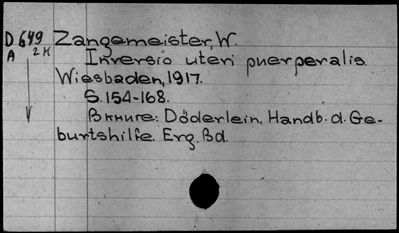 D 649 Zangemeister, W.
A 2K Inversio uteri puerperalis.
Wiesbaden, 1917.
S. 154-168.
В книге: Döderlein, Handb. d. Ge-
burtshilfe. Erg. Bd.